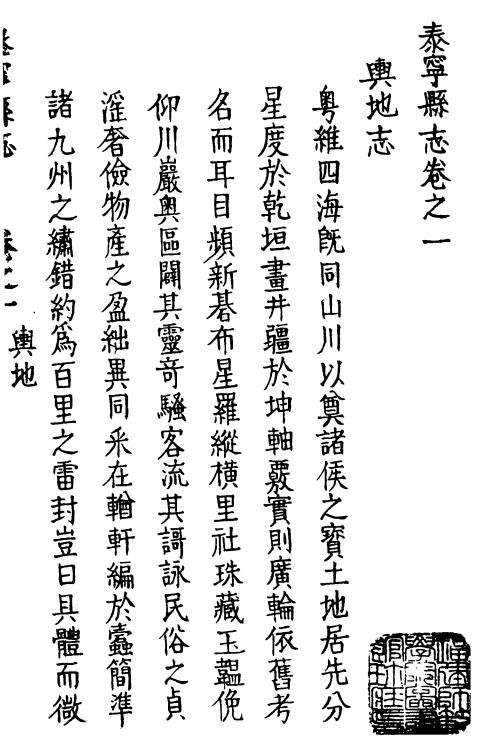 泰寧縣志卷之一
輿地志
粤維四海旣同山川以奠諸侯之寶土地居先分
星度於乾垣畫井疆於坤軸覈實則廣輪依舊考
名而耳目頻新碁布星羅縱橫里社珠藏玉韞俛
仰川巖奧區闢其靈竒騷客流其謌詠民俗之貞
滛奢儉物產之盈絀異同釆在輶軒編於蠧簡準
諸九州之繡錯約爲百里之雷封豈曰具體而微
泰寧縣志 卷之一 輿地